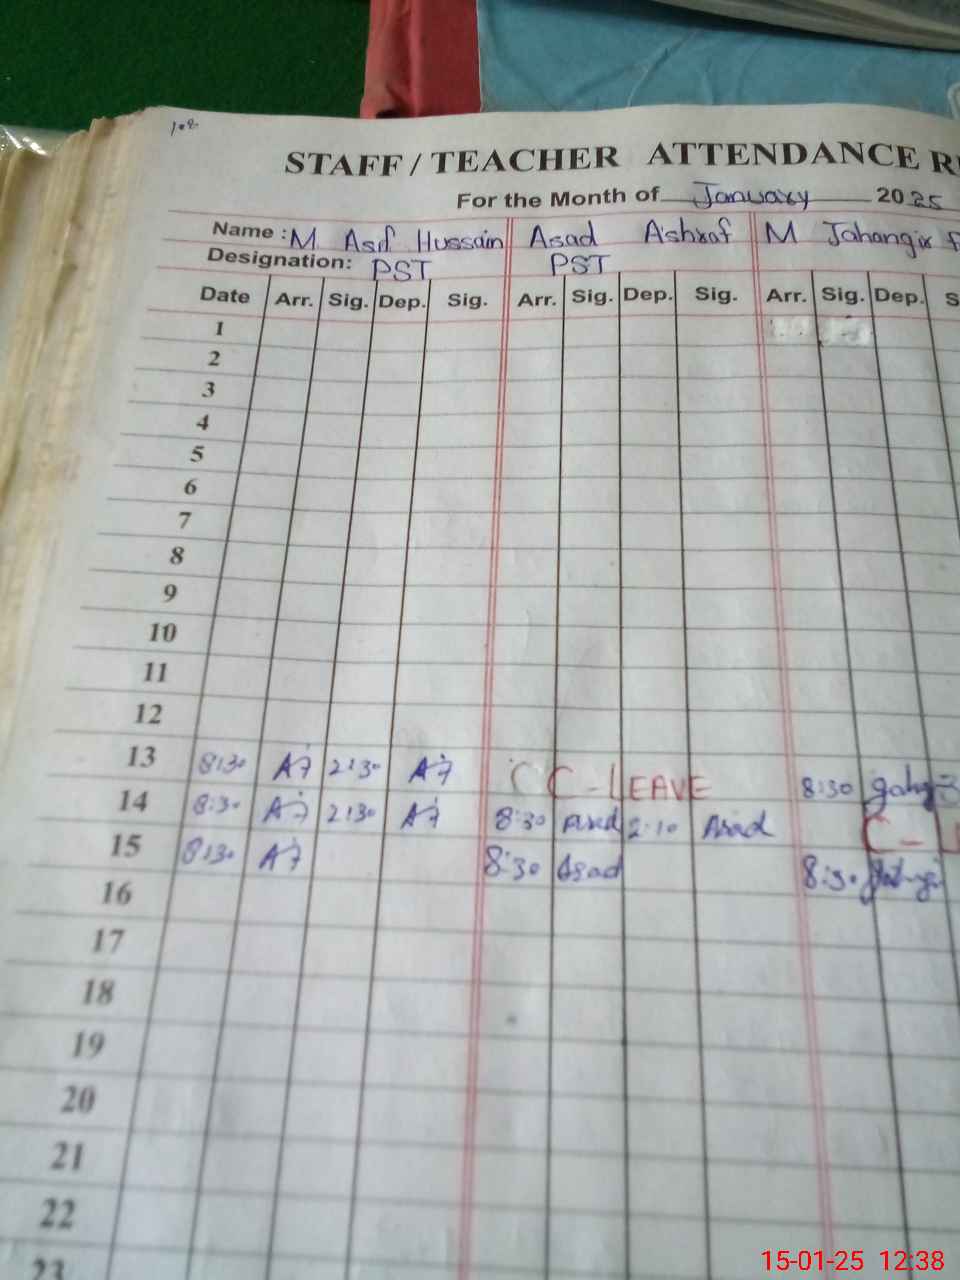 STAFF / TEACHER ATTENDANCE
For the Month of January 2025
Name : M Asif Hussain Asad Ashraf M Jahangir
Designation: PST PST
Date Arr. Sig. Dep. Sig. Arr. Sig. Dep. Sig. Arr. Sig. Dep. S
1
2
3
4
5
6
7
8
9
10
11
12
13 8:30 2:30 C C-LEAVE 8:30
14 8:30 2:30 8:30 Asad 2:10 Asad C-L
15 8:30 8:30 Asad 8:30
16
17
18
19
20
21
22
23
15-01-25 12:38